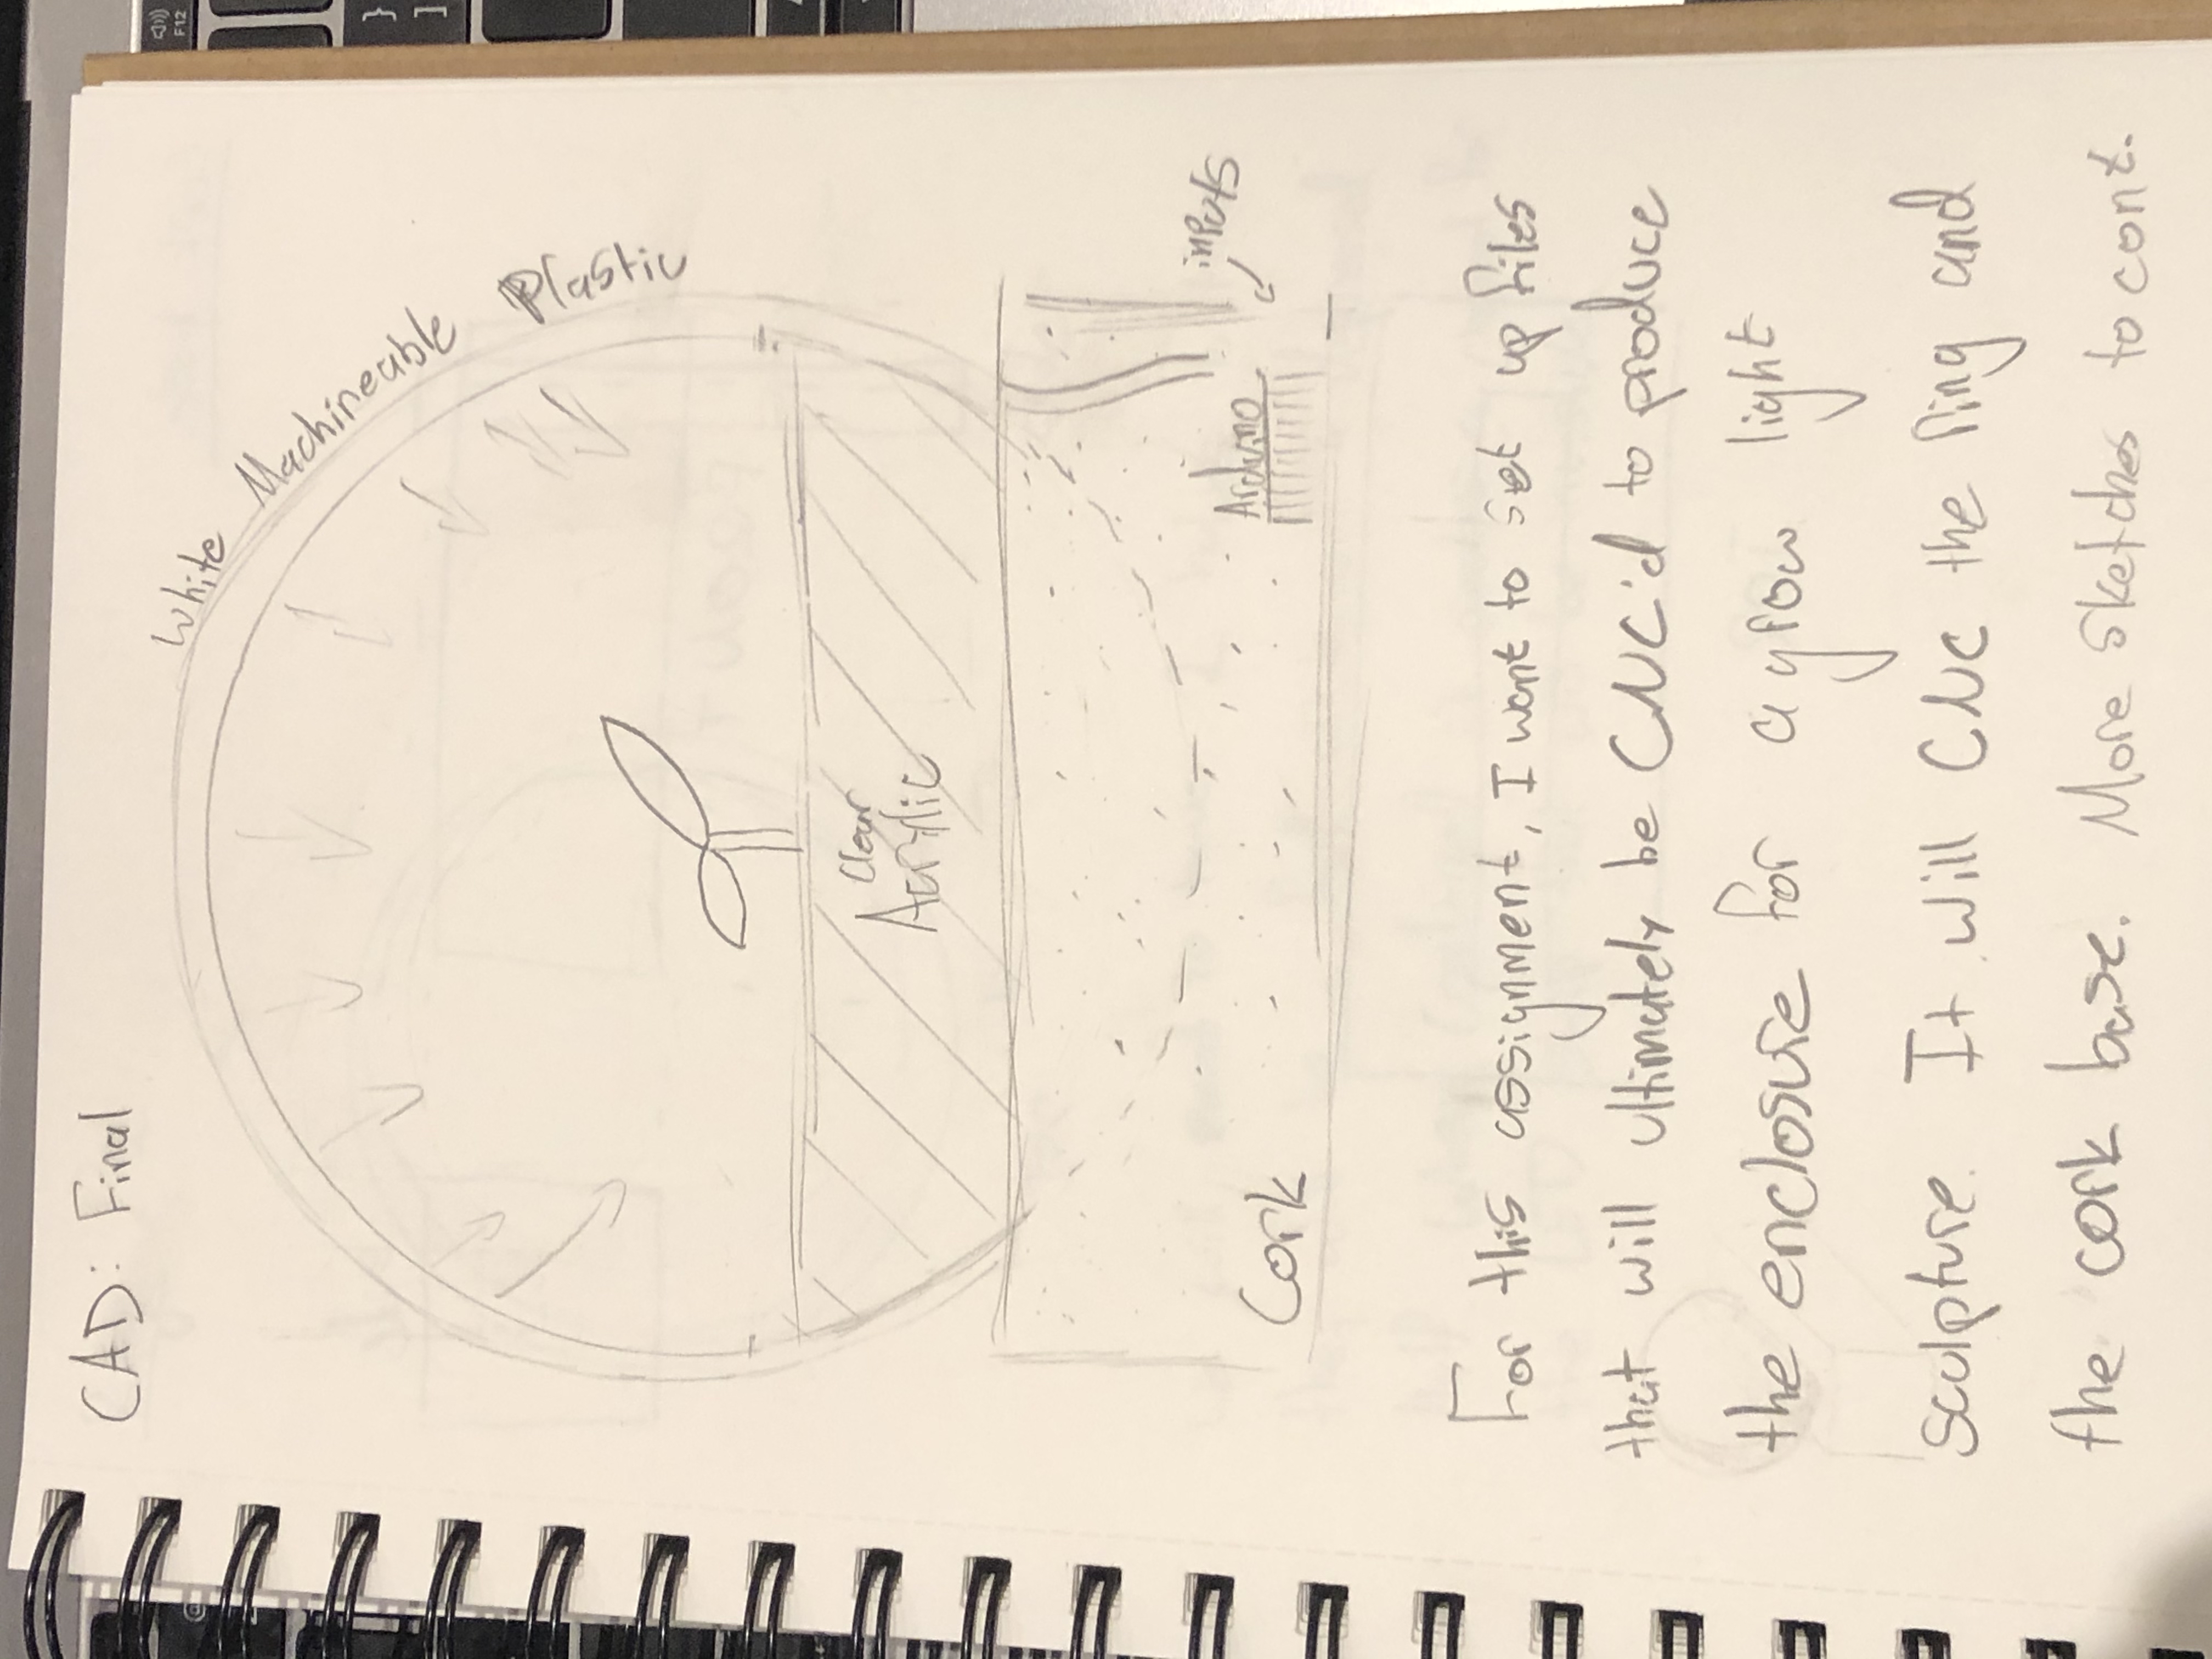 CAD: Final
White Machineable Plastic
Clear
Acrylic
Arduino
inputs
Cork
For this assignment, I want to set up files
that will ultimately be CNC'd to produce
the enclosure for a grow light
sculpture. It will CNC the ring and
the cork base. More sketches to cont.
FRONT
F12
}
]